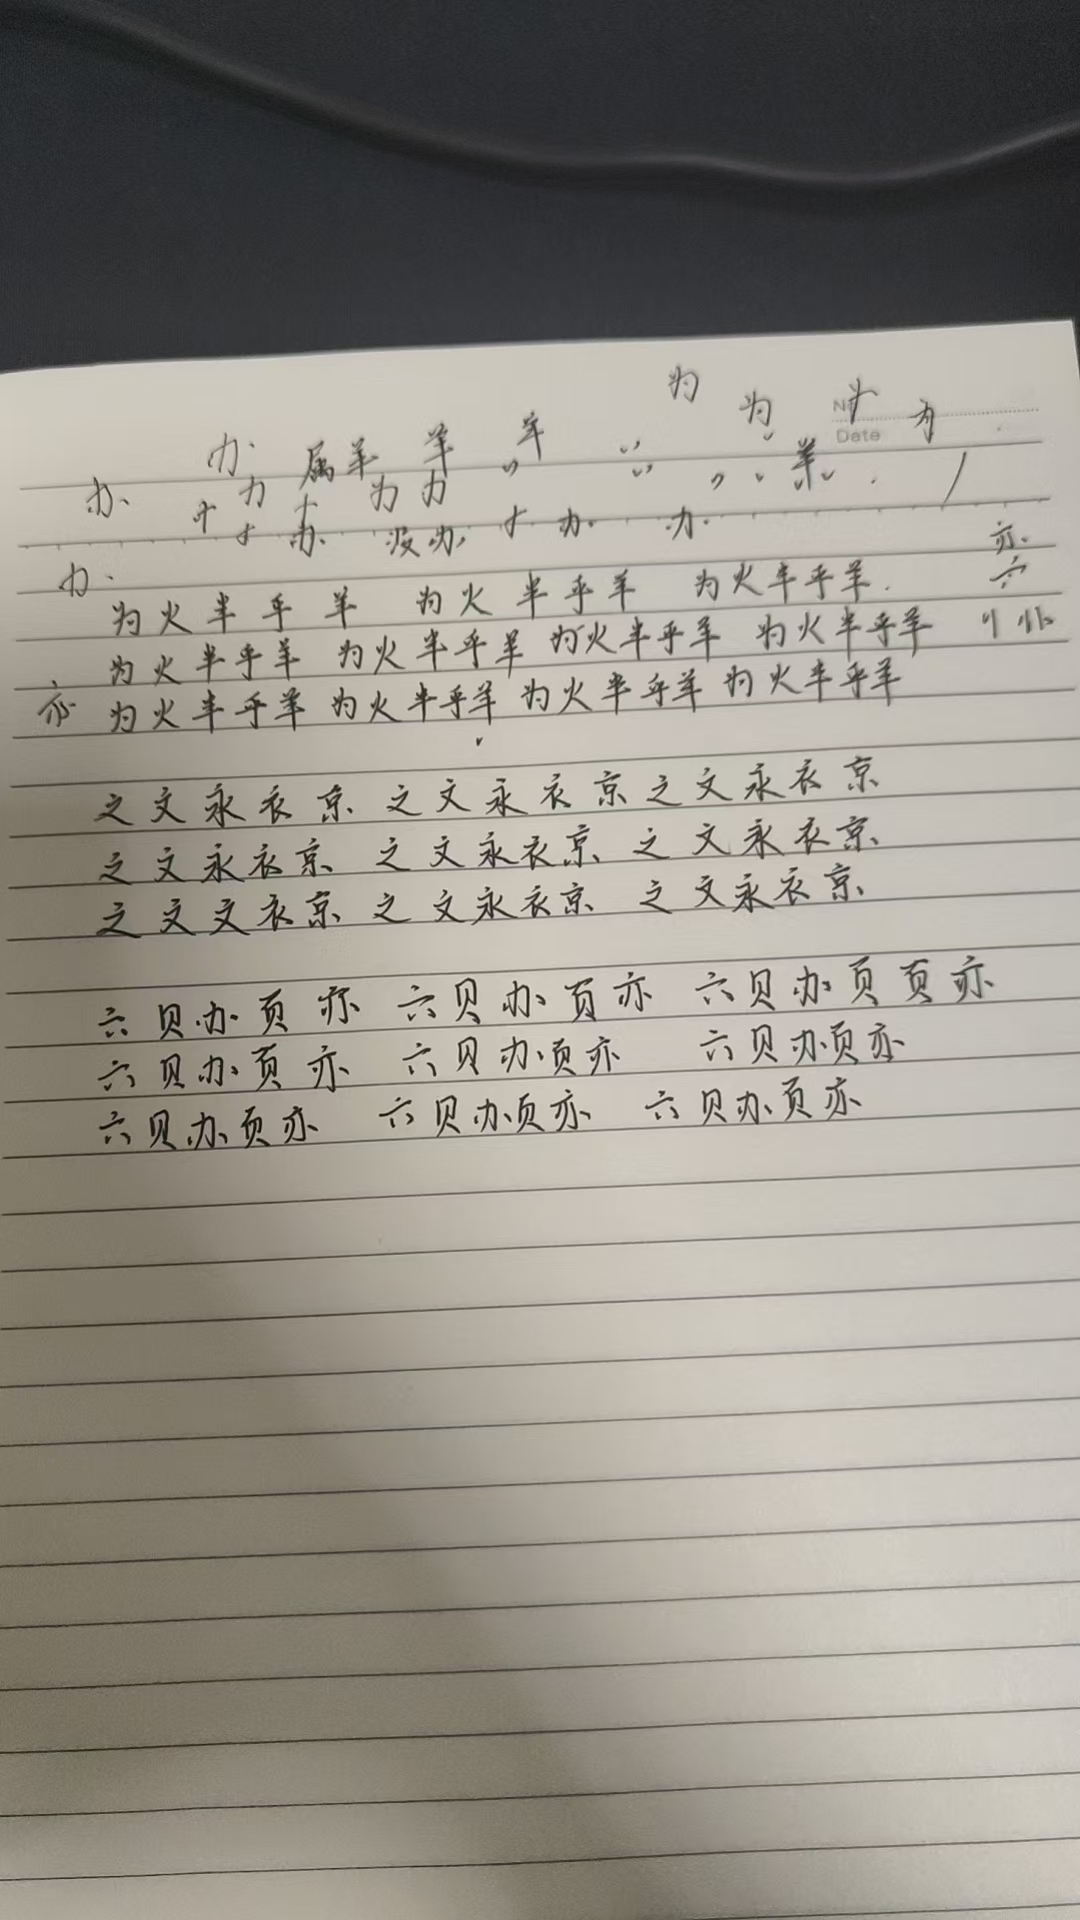 为 为 No
Date
办 属羊 羊
办 力 为力 羊
办 没办 办 办
办
亦
为火半乎羊 为火半乎羊 为火半乎羊
为火半乎羊 为火半乎羊 为火半乎羊 为火半乎羊
亦 为火半乎羊 为火半乎羊 为火半乎羊 为火半乎羊
之文永衣京 之文永衣京 之文永衣京
之文永衣京 之文永衣京 之文永衣京
之文文衣京 之文永衣京 之文永衣京
六贝办页亦 六贝办页亦 六贝办页页亦
六贝办页亦 六贝办页亦 六贝办页亦
六贝办页亦 六贝办页亦 六贝办页亦